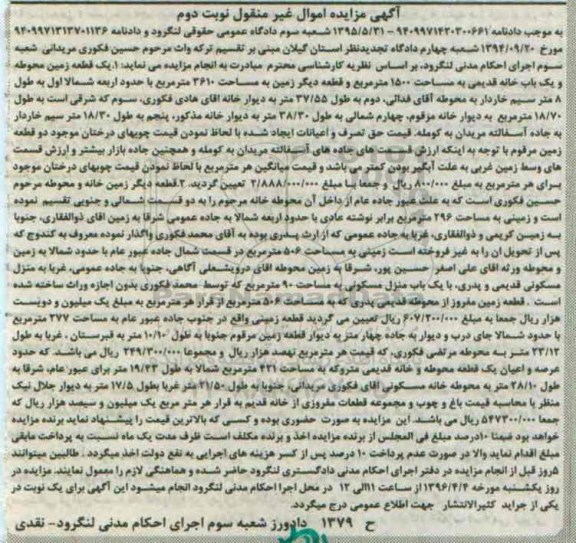 آگهی مزایده اموال غیر منقول نوبت دوم
به موجب دادنامه ۹۴۰۹۹۷۱۴۲۰۳۰۰۶۶۱ - ۱۳۹۵/۵/۳۱ شعبه سوم دادگاه عمومی حقوقی لنگرود و دادنامه ۹۴۰۹۹۷۱۳۱۳۷۰۱۱۳۶
مورخ ۱۳۹۴/۰۹/۲۰ شعبه چهارم دادگاه تجدیدنظر استان گیلان مبنی بر تقسیم ترکه وراث مرحوم حسین فکوری مریدانی شعبه
سوم اجرای احکام مدنی لنگرود، بر اساس نظریه کارشناسی محترم مبادرت به انجام مزایده می نماید: ۱.یک قطعه زمین محوطه
و یک باب خانه قدیمی به مساحت ۱۵۰۰ مترمربع و قطعه دیگر زمین به مساحت ۳۶۱۰ مترمربع با حدود اربعه شمالا اول به طول
۸ متر سیم خاردار به محوطه آقای فدائی، دوم به طول ۳۷/۵۵ متر به دیوار خانه اقای هادی فکوری، سوم که شرقی است به طول
۱۸/۷۰ مترمربع به دیوار خانه مزقوم، چهارم شمالی به طول ۳۸/۳۰ متر به دیوار خانه مذکور، پنجم به طول ۱۸/۳۰ متر سیم خاردار
به جاده آسفالته مریدان به کومله. قیمت حق تصرف و اعیانات ایجاد شده با لحاظ نمودن قیمت چوبهای درختان موجود دو قطعه
زمین مرقوم با توجه به اینکه ارزش قسمت های جاده های آسفالته مریدان به کومله و همچنین جاده بازار بیشتر و ارزش قسمت
های وسط زمین غربی به علت آبگیر بودن کمتر می باشد و قیمت میانگین هر مترمربع با لحاظ نمودن قیمت چوبهای درختان موجود
برای هر مترمربع به مبلغ ۸۰۰/۰۰۰ ریال و جمعا با مبلغ ۲/۸۸۸/۰۰۰/۰۰۰ تعیین گردید. ۲.قطعه دیگر زمین خانه و محوطه مرحوم
حسین فکوری است که به علت عبور جاده عام از داخل آن محوطه خانه مرحوم را به دو قسمت شمالی و جنوبی تقسیم نموده
است و زمینی به مساحت ۲۹۶ مترمربع برابر نوشته عادی با حدود اربعه شمالا به جاده عمومی شرقا به زمین اقای ذوالفقاری، جنوبا
به زمین کریمی و ذوالفقاری، غربا به جاده عمومی که از ارث پدری بوده به آقای محمد فکوری واگذار نموده معروف به گندوج که
پس از تحویل ان را به غیر فروخته است زمینی به مساحت ۵۰۶ مترمربع در قسمت شمال جاده عبور عام با حدود شمالا به زمین
و محوطه ورثه اقای علی اصغر حسین پور، شرقا به زمین محوطه اقای درویشعلی آگاهی، جنوبا به جاده عمومی، غربا به منزل
مسکونی قدیمی و پدری، با یک باب منزل مسکونی به مساحت ۹۰ مترمربع که توسط محمد فکوری بدون اجازه وراث ساخته شده
است . قطعه زمین مفروز از محوطه قدیمی پدری که به مساحت ۵۰۶ مترمربع از قرار هر مترمربع به مبلغ یک میلیون و دویست
هزار ریال جمعا به مبلغ ۶۰۷/۲۰۰/۰۰۰ ریال تعیین می گردید قطعه زمینی واقع در جنوب جاده عبور عام به مساحت ۲۷۷ مترمربع
با حدود شمالا جای درب و دیوار به جاده چهار متر به دیوار قطعه زمین مرقوم جنوبا به طول ۱۰/۱۰ متر به قبرستان ، غربا به طول
۲۳/۱۲ متر به محوطه مرتضی فکوری، که قیمت هر مترمربع نهصد هزار ریال و مجموعا ۲۴۹/۳۰۰/۰۰۰ ریال می باشد. که حدود
عرصه و اعیان یک قطعه محوطه و خانه قدیمی متروکه به مساحت ۴۲۱ مترمربع شمالا به طول ۱۹/۲۳ متر برای عبور عام، شرقا به
طول ۲۸/۱۰ متر به محوطه خانه مسکونی آقای فکوری مریدانی، جنوبا به طول ۲۱/۵۰ متر غربا بطول ۱۷/۵ متر به دیوار جلال نیک
منظر با محاسبه قیمت باغ و چوب و مجموعه قطعات مفروزی از خانه قدیم به قرار هر متر مربع یک میلیون و سیصد هزار ریال که
جمعا ۵۴۷۳۰۰/۰۰۰ ریال می باشد. این مزایده به صورت حضوری بوده و کسی که بالاترین قیمت را پیشنهاد نماید برنده مزایده
خواهد بود ضمنا ۱۰درصد مبلغ فی المجلس از برنده مزایده اخذ و برنده مکلف است ظرف مدت یک ماه نسبت به پرداخت مابقی
مبلغ اقدام نماید والا در صورت عدم پرداخت ۱۰ درصد پس از کسر هزینه های اجرایی به نفع دولت اخذ میگردد . طالبین میتوانند
۵روز قبل از انجام مزایده در دفتر اجرای احکام مدنی دادگستری لنگرود حاضر شده و هماهنگی لازم را معمول نمایند. مزایده در
روز یکشنبه مورخه ۱۳۹۶/۴/۴ از ساعت ۱۱الی ۱۲ در محل اجرا احکام مدنی لنگرود انجام میشود این آگهی برای یک نوبت در
یکی از جراید کثیرالانتشار جهت اطلاع عمومی درج میگردد.
ح ۱۳۷۹ دادورز شعبه سوم اجرای احکام مدنی لنگرود- نقدی